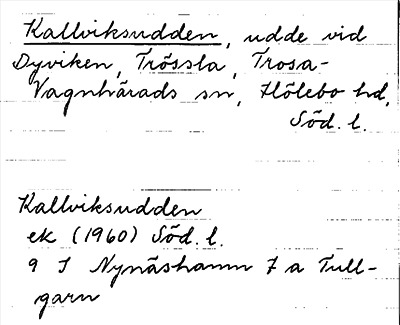 Kallviksudden, udde vid
Dyviken, Trössla, Trosa-
Vagnhärads sn, Hölebo hd,
Söd. l.
Kallviksudden
ek (1960) Söd. l.
9 I Nynäshamn 7 a Tull-
garn